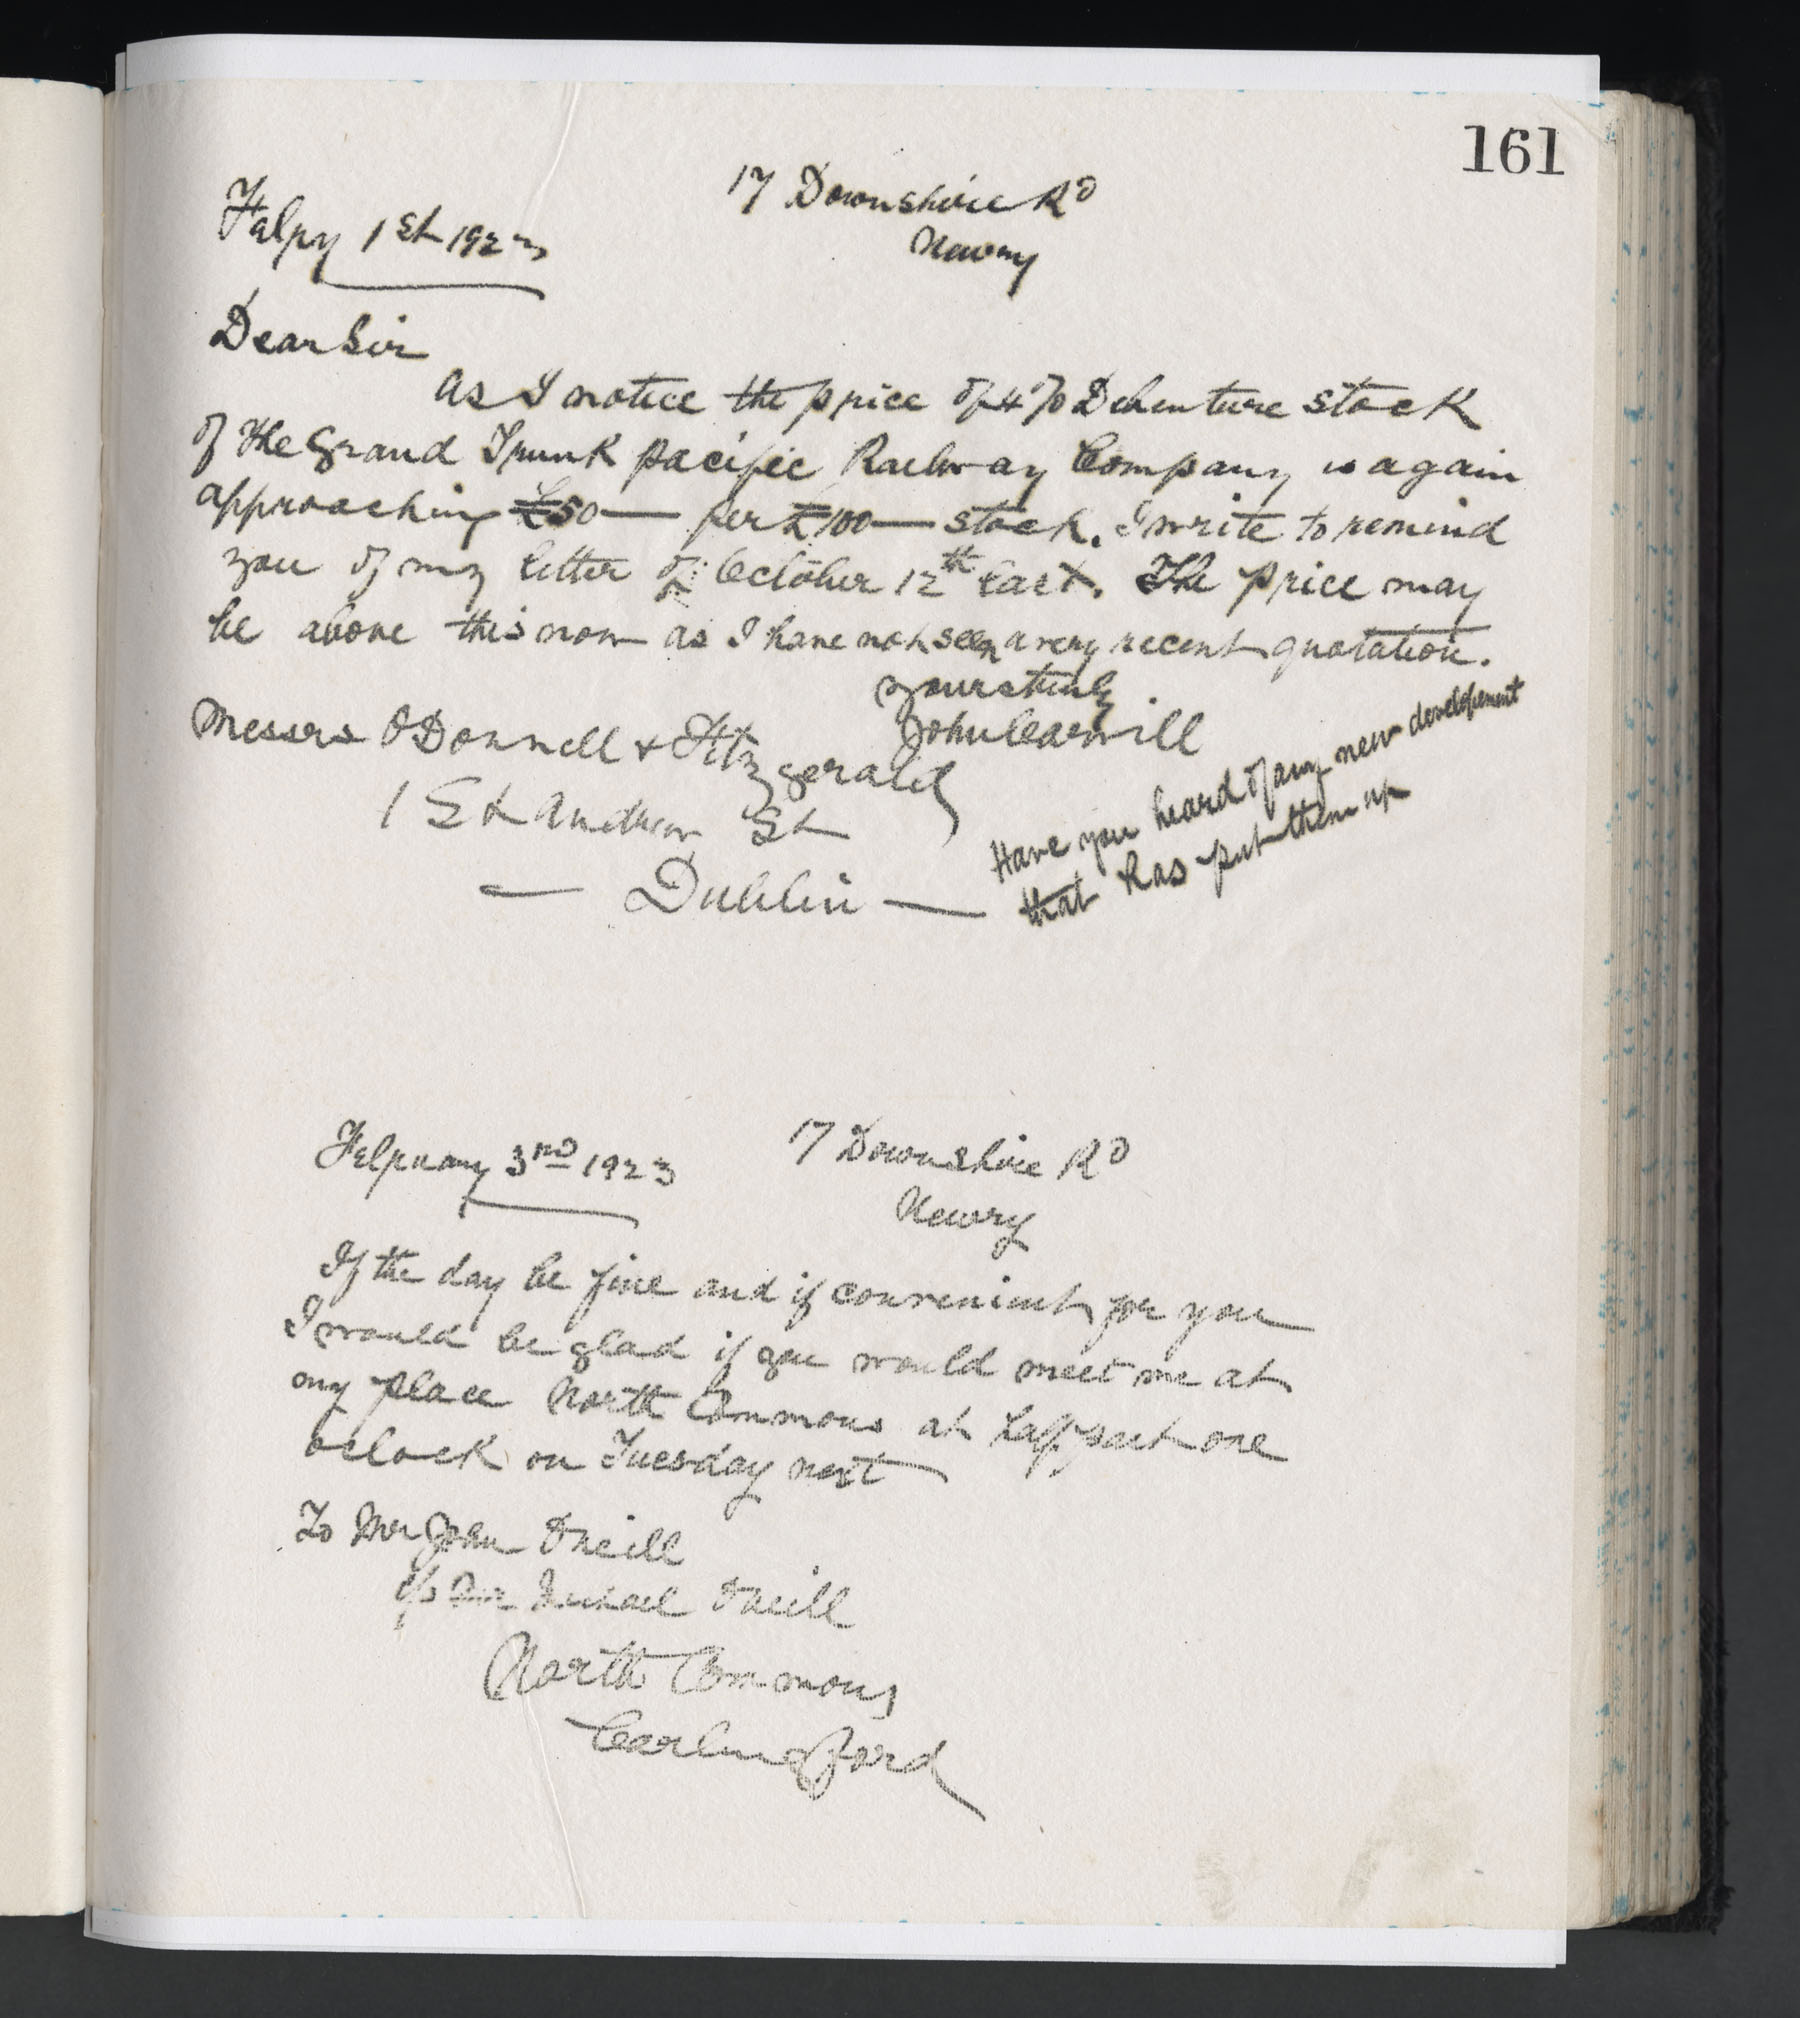 161
17 Downshire Rd
Newry
Febry 1st 1923
Dear Sir
As I notice the price of 4% Debenture stock
of the Grand Trunk Pacific Railway Company is again
approaching £50— per £100— stock. I write to remind
you of my letter of October 12th last. The price may
be above this now as I have not seen a very recent quotation.
yours truly
John Carvill
Messrs O'Donnell & Fitzgerald
1 St Andrew St
— Dublin —
Have you heard of any new developement
that has put them up
February 3rd 1923
17 Downshire Rd
Newry
If the day be fine and if convenient for you
I would be glad if you would meet me at
my place North Commons at half past one
oclock on Tuesday next
To Mr John O'Neill
c/o Mr Michael O'Neill
North Commons
Carlingford